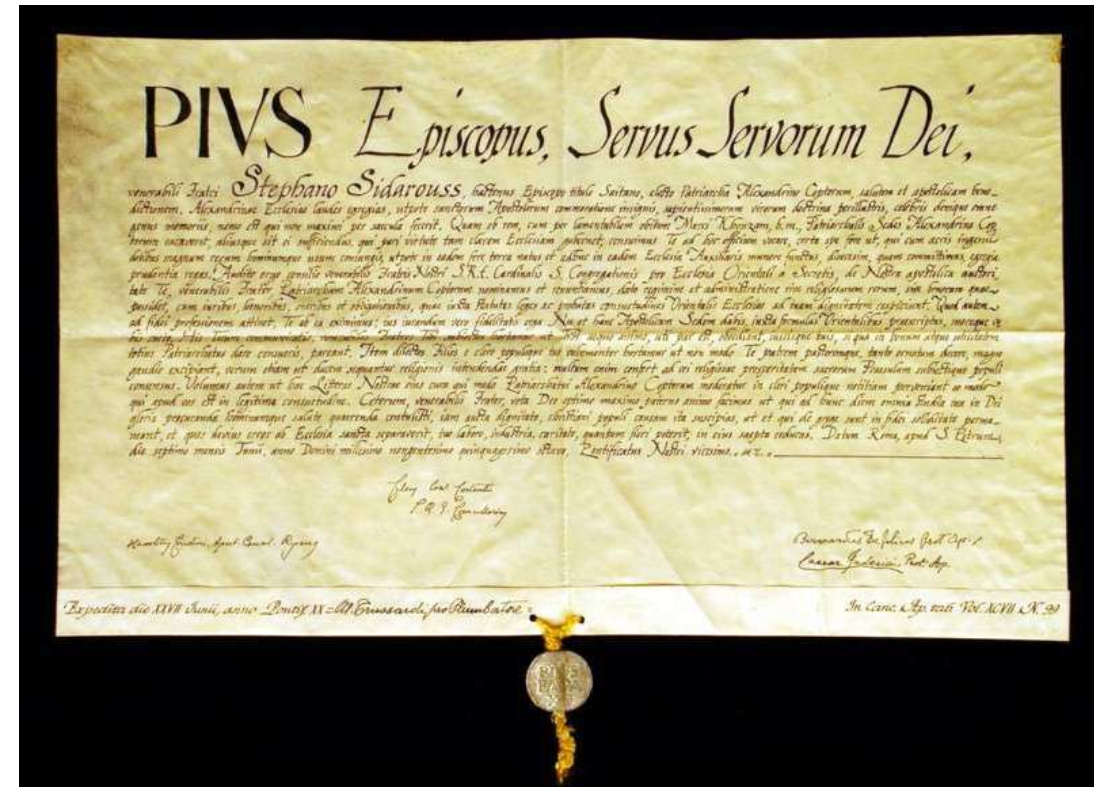 PIVS Episcopus, Servus Servorum Dei,
venerabili Fratri Stephano Sidarouss, hactenus Episcopo titulo Saitano, electo Patriarcha Alexandrino Coptorum, salutem et apostolicam bene-
dictionem. Alexandrinae Ecclesiae laudes egregias, utpote sanctorum Apostolorum commoratione insignis, sapientissimorum virorum doctrina perillustris, celebris denique omne
genus memoriis, nemo est qui non maximi per saecula fecerit. Quam ob rem, cum per lamentabilem obitum Marci Khouzam, b.m., Patriarchalis Sedes Alexandrina Cop-
torum vacaverit, aliusque sit ei sufficiendus, qui pari virtute tam claram Ecclesiam gubernet, censuimus Te ad hoc officium vocare, certa spe fore ut, qui cum acris ingenii
dotibus magnum rerum hominumque usum coniungis, utpote in eadem fere terra natus et adhuc in eadem Ecclesia Auxiliaris munere functus, dioecesim, quam committimus, egregia
prudentia regas. Audito ergo consilio venerabilis Fratris Nostri S.R.E. Cardinalis S. Congregationis pro Ecclesia Orientali a Secretis, de Nostra apostolica auctori-
tate Te, venerabilis Frater, Patriarcham Alexandrinum Coptorum nominamus et renuntiamus, dato regimine et administratione rerum, sive
possidet, cum iuribus, honoribus, et obligationibus, quae iuxta statutas leges ac probatas consuetudines Orientalis Ecclesiae ad tuam dignitatem respiciunt. Quod autem
ad fidei professionem attinet, Te ab ea eximimus; ius iurandum vero fidelitatis erga Nos et hanc Apostolicam Sedem dabis, iuxta formulas Orientalibus praescriptas,
ut non aequo animo, uti par est, obediant, iussisque tuis, si qua in bonum atque utilitatem
totius Patriarchatus dare censueris, pareant. Item dilectos Filios e clero populoque tuo vehementer hortamur ut non modo Te patrem pastoremque, tanto ornatum decore, magno
gaudio excipiant, verum etiam ut ducem religionis grata: multum enim confert ad rei religiosae prosperitatem sacrorum Praesulum subiectique populi
consensus. Volumus autem ut hae Litterae Nostrae eius cura qui modo Patriarchatui Alexandrino Coptorum moderatur in cleri populique notitiam perveniant eo modo
qui apud vos est in legitima consuetudine. Ceterum, venerabilis Frater, vota Deo optimo maximo paterno animo facimus ut qui ad hunc diem omnia studia tua in Dei
gloria procuranda hominumque salute quaerenda contulisti, iam aucta dignitate, christiani populi causam ita suscipias, ut et qui de grege sunt in fidei soliditate perma-
neant, et quos devius error ab Ecclesia sancta separaverit, tuo labore, industria, caritate, quantum fieri poterit, in eius saepta reducas. Datum Roma, apud S. Petrum
die septimo mensis Iunii, anno Domini millesimo nongentesimo quinquagesimo octavo, Pontificatus Nostri vicesimo.
Apost. Cancel.
Bernardus De Felicis Prot. Ap.
Caesar Federici Prot. Ap.
Expedita die XXVII Iunii, anno Pontif. XX = M. Trussardi pro Plumbatore =
In Canc. Ap. tab. Vol. XCVII N. 99
PIVS
PAPA